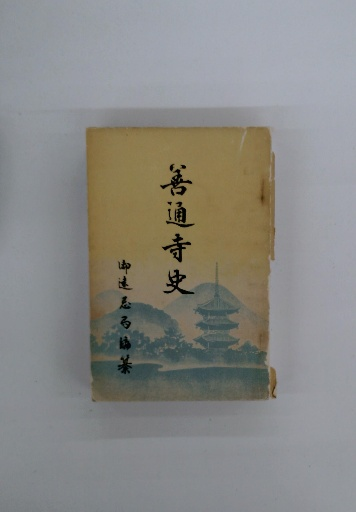 善通寺史
御遠忌局編纂